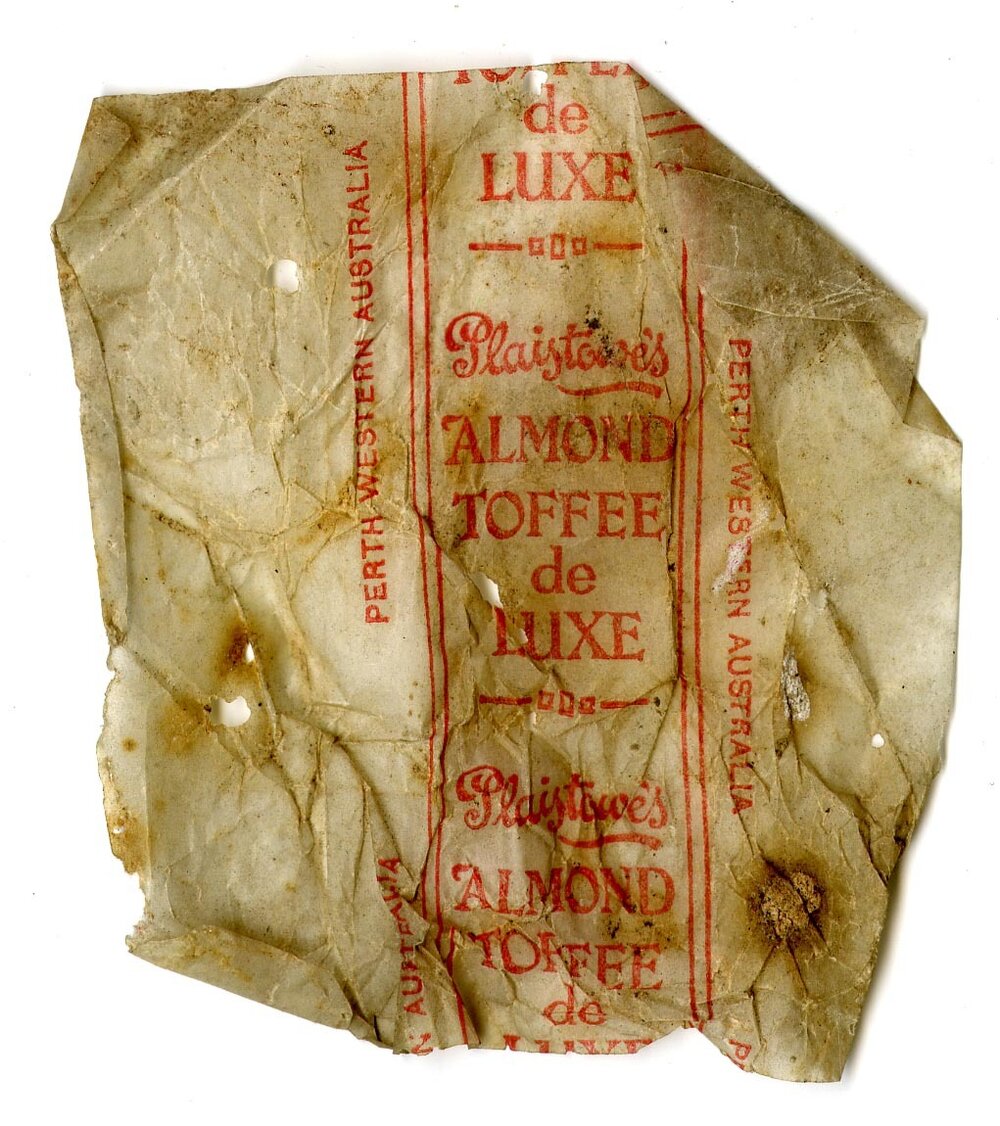 TOFFEE
de
LUXE
Plaistowe's
ALMOND
TOFFEE
de
LUXE
Plaistowe's
ALMOND
TOFFEE
de
LUXE
PERTH WESTERN AUSTRALIA
AUSTRALIA
PERTH WESTERN AUSTRALIA